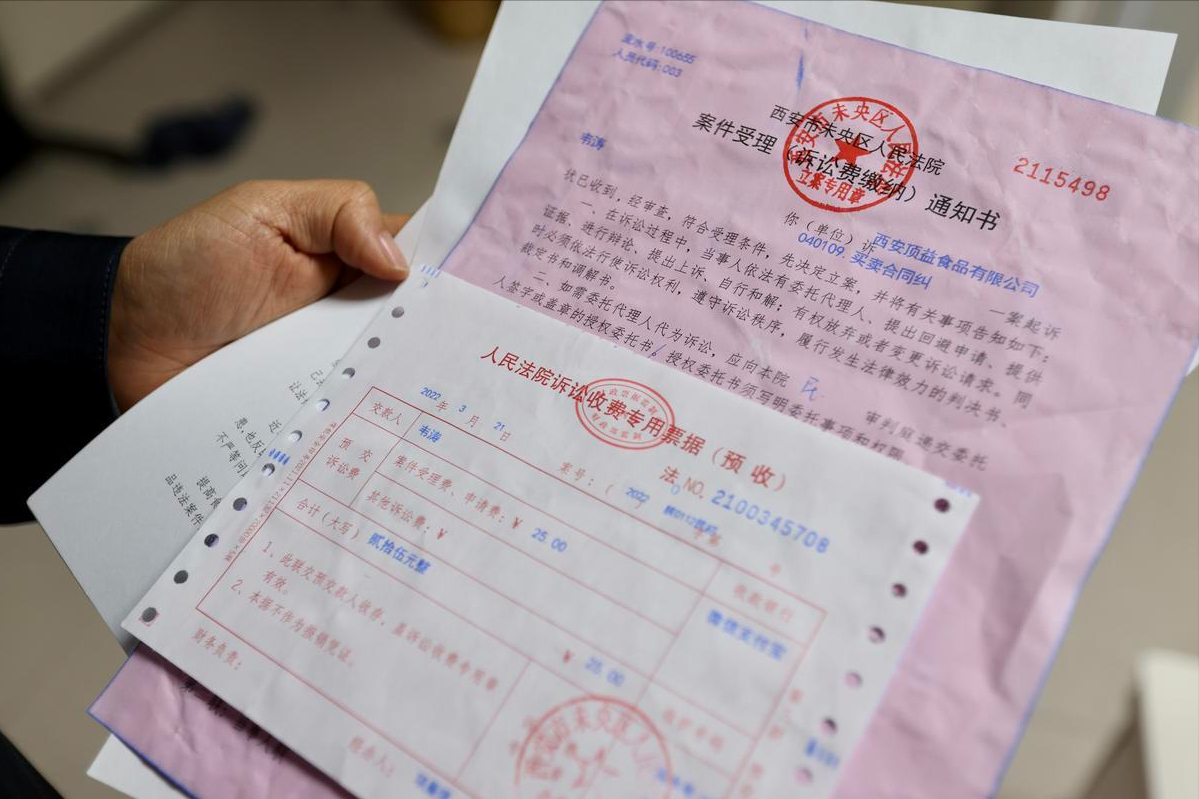 流水号:100655
人员代码:003
西安市未央区人民法院
案件受理（诉讼费缴纳）通知书
2115498
韦涛
你（单位）诉 西安顶益食品有限公司
040109.买卖合同纠 一案起诉
状已收到，经审查，符合受理条件，先决定立案，并将有关事项告知如下：
一、在诉讼过程中，当事人依法有委托代理人、提出回避申请、提供
证据、进行辩论、提出上诉、自行和解；有权放弃或者变更诉讼请求。同
时必须依法行使诉讼权利，遵守诉讼秩序，履行发生法律效力的判决书、
裁定书和调解书。
二、如需委托代理人代为诉讼，应向本院 民 审判庭递交委托
人签字或盖章的授权委托书。授权委托书须写明委托事项和权限
未央区人
立案专用章
人民法院诉讼收费专用票据（预收）
2022 年 3 月 21 日
法 NO. 2100345708
案号：（ 2022
号
交款人 韦涛
预交
诉讼费
案件受理费、申请费：¥ 25.00
其他诉讼费：¥
收款银行
合计（大写） 贰拾伍元整
¥ 25.00
1、此联交预交款人收存，盖诉讼收费专用章
有效。
2、本据不作为报销凭证。
财务负责：
经办人：
未央区人民
近
不严等问
提高食
品违法案件